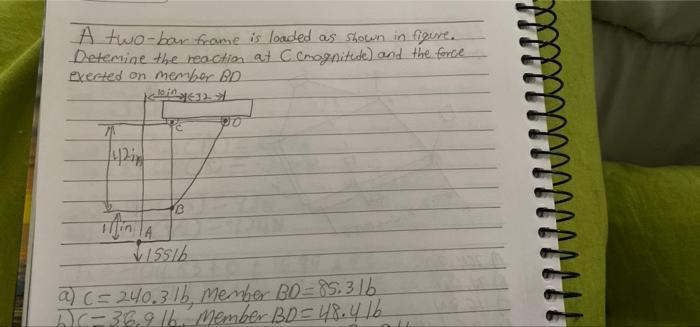 A two-bar frame is loaded as shown in figure.
Detemine the reaction at C (magnitude) and the force
exerted on member BD
10in 32
C D
42in
B
11in A
155lb
a) C = 240.3 lb, member BD = 85.3 lb
b) C = 36.9 lb, Member BD = 48.4 lb